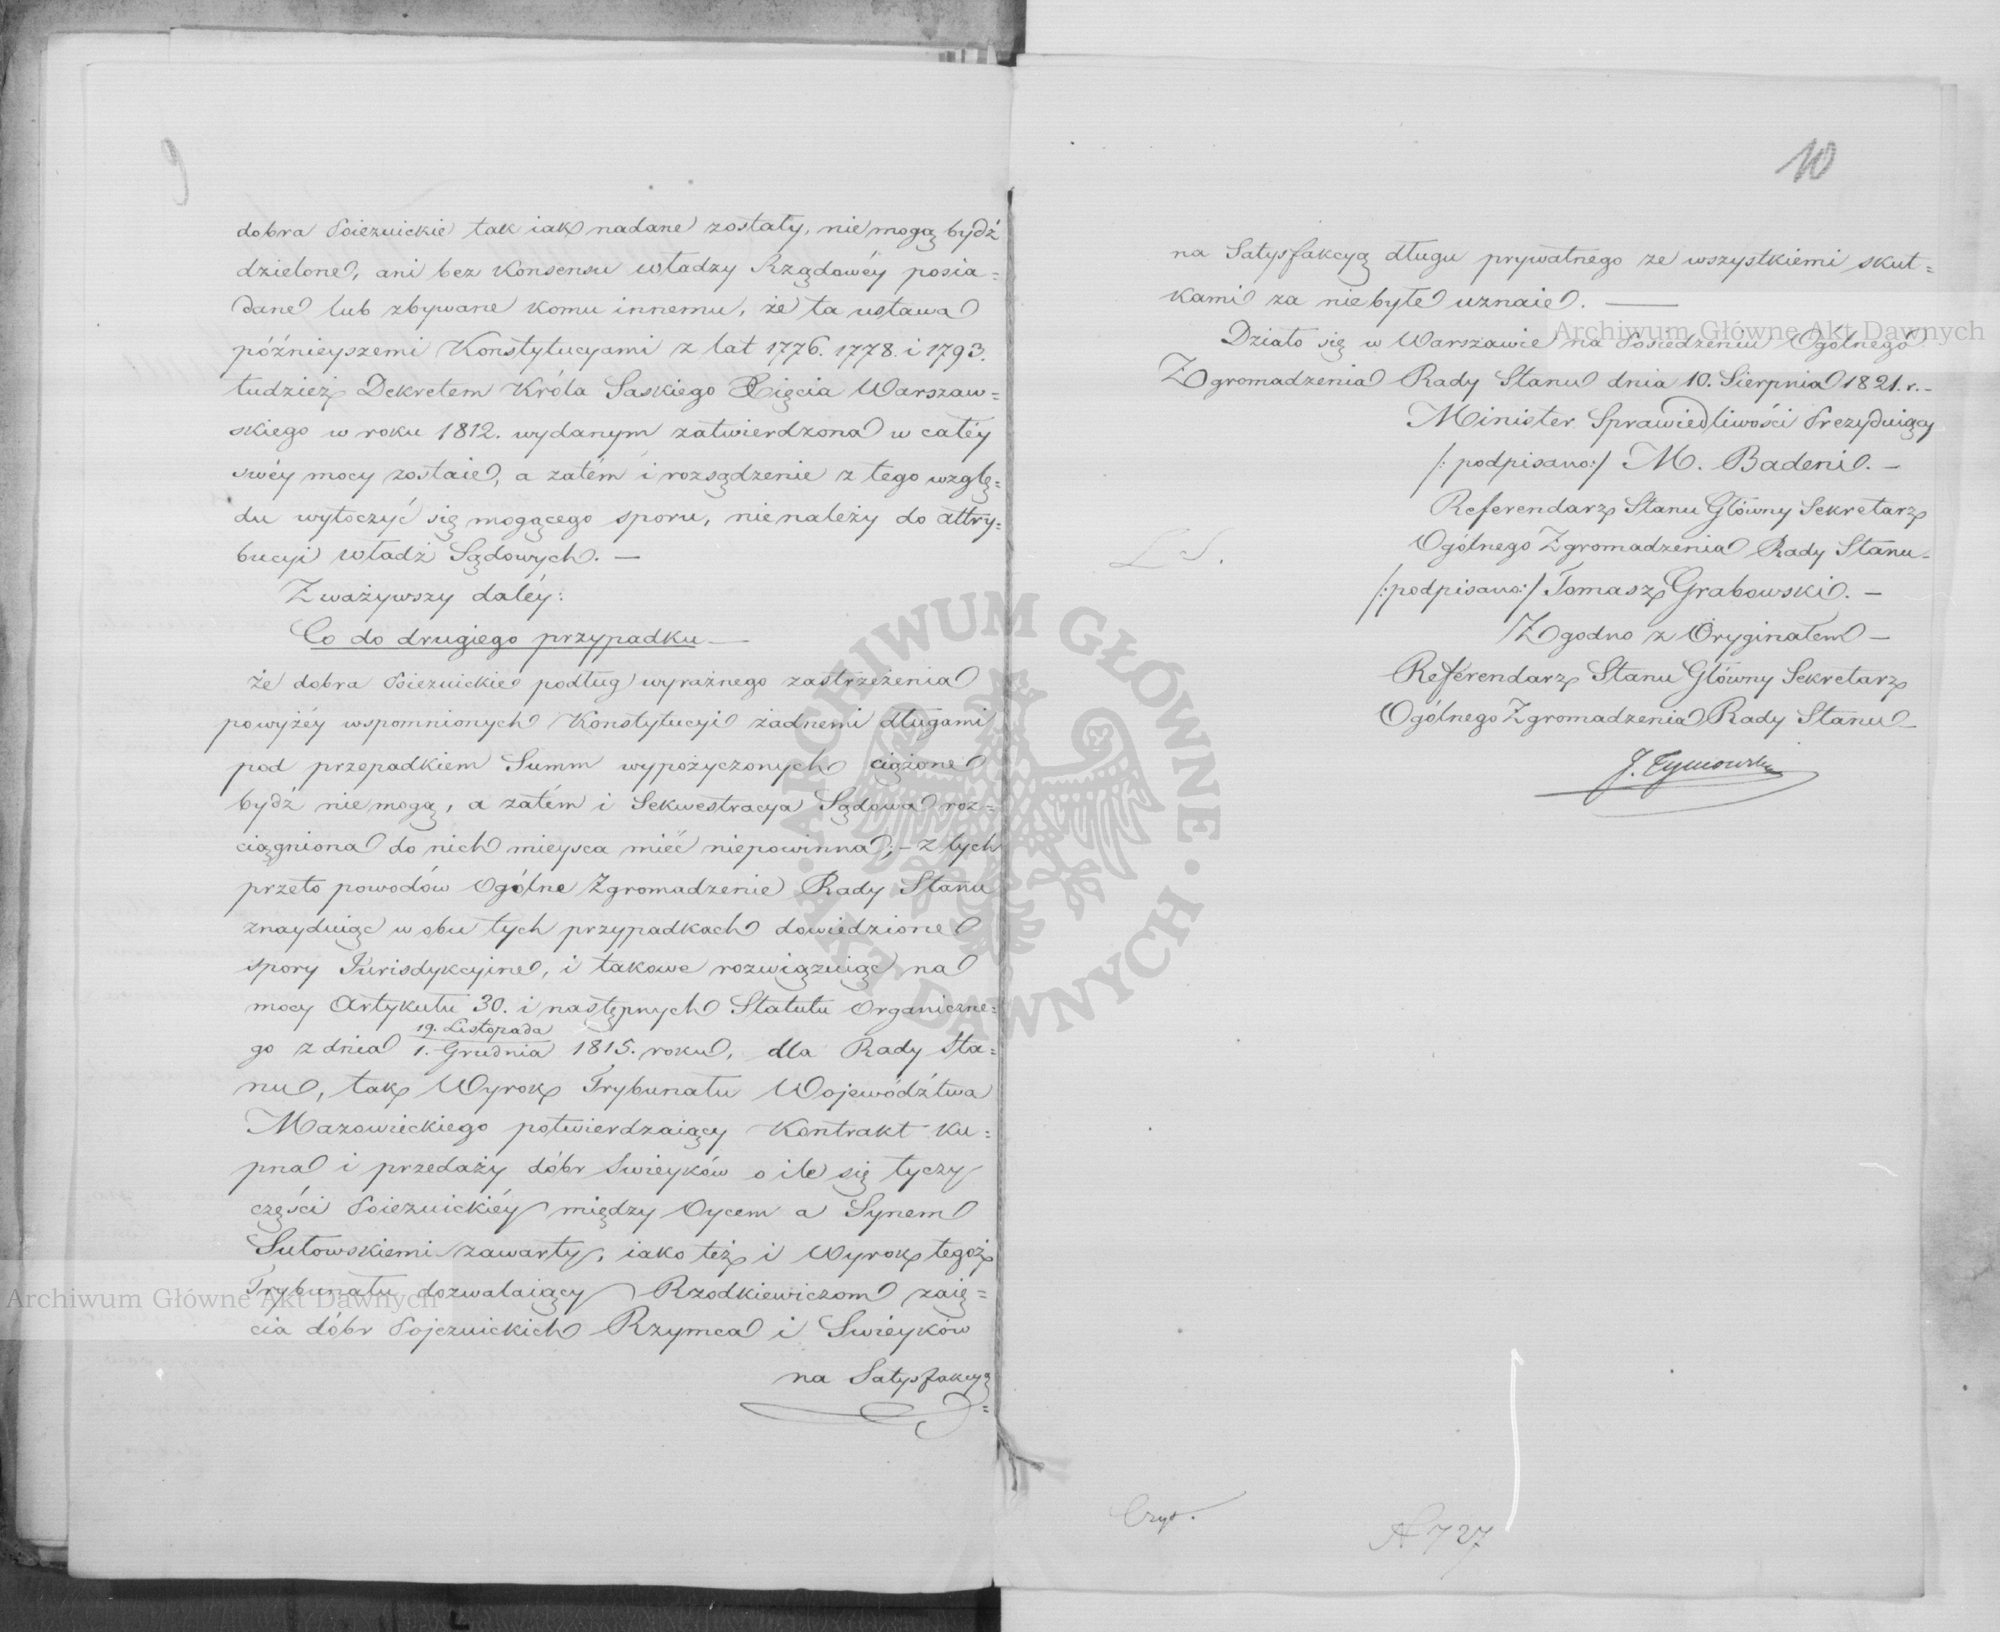 9
dobra Poiezuickie tak iak nadane zostały, nie mogą bydź
dzielone, ani bez Konsensu władzy Rządowéy posia=
dane lub zbywane komu innemu, że ta ustawa
późnieyszemi Konstytucyami z lat 1776. 1778. i 1793.
tudzież Dekretem Króla Saskiego Xięcia Warszaw=
skiego w roku 1812. wydanym zatwierdzona w całéy
swéy mocy zostaie, a zatém i rozsądzenie z tego wzglę=
du wytoczyć się mogącego sporu, nie należy do attry=
bucyi władz Sądowych. —
Zważywszy daléy:
Co do drugiego przypadku —
że dobra Poiezuickie podług wyraźnego zastrzeżenia
powyżéy wspomnionych Konstytucyi żadnemi długami
pod przepadkiem Summ wypożyczonych ciążone
bydź nie mogą, a zatém i Sekwestracya Sądowa roz=
ciągniona do nich mieysca mieć niepowinna; – z tych
przeto powodów Ogólne Zgromadzenie Rady Stanu
znayduiąc w obu tych przypadkach dowiedzione
spory Jurisdykcyine, i takowe rozwiązuiąc na
mocy Artykułu 30. i następnych Statutu Organiczne=
19. Listopada
go z dnia 1. Grudnia 1815. roku, dla Rady Sta=
nu, tak Wyrok Trybunału Województwa
Mazowieckiego potwierdzaiący Kontrakt ku=
pna i przedaży dóbr Swieyków o ile się tyczy
części Poiezuickiéy między Oycem a Synem
Sułowskiemi zawarty, iako też i Wyrok tegoż
Trybunału dozwalaiący Rzodkiewiczom zaię=
cia dóbr Pojezuickich Rzymca i Swieyków
na Satysfakcyą=
10
na Satysfakcyą długu prywatnego ze wszystkiemi skut=
kami za niebyłe uznaie. —
Działo się w Warszawie na Posiedzeniu Ogólnego
Zgromadzenia Rady Stanu dnia 10. Sierpnia 1821. r. –
Minister Sprawiedliwości Prezyduiący
/: podpisano:/ M. Badeni. —
Referendarz Stanu Główny Sekretarz
Ogólnego Zgromadzenia Rady Stanu –
L S.
/:podpisano:/ Tomasz Grabowski. —
Zgodno z Oryginałem —
Referendarz Stanu Główny Sekretarz
Ogólnego Zgromadzenia Rady Stanu –
J. Tymowski
Czyt.
N 727
Archiwum Główne Akt Dawnych
Archiwum Główne Akt Dawnych
ARCHIWUM GŁÓWNE · AKT DAWNYCH ·